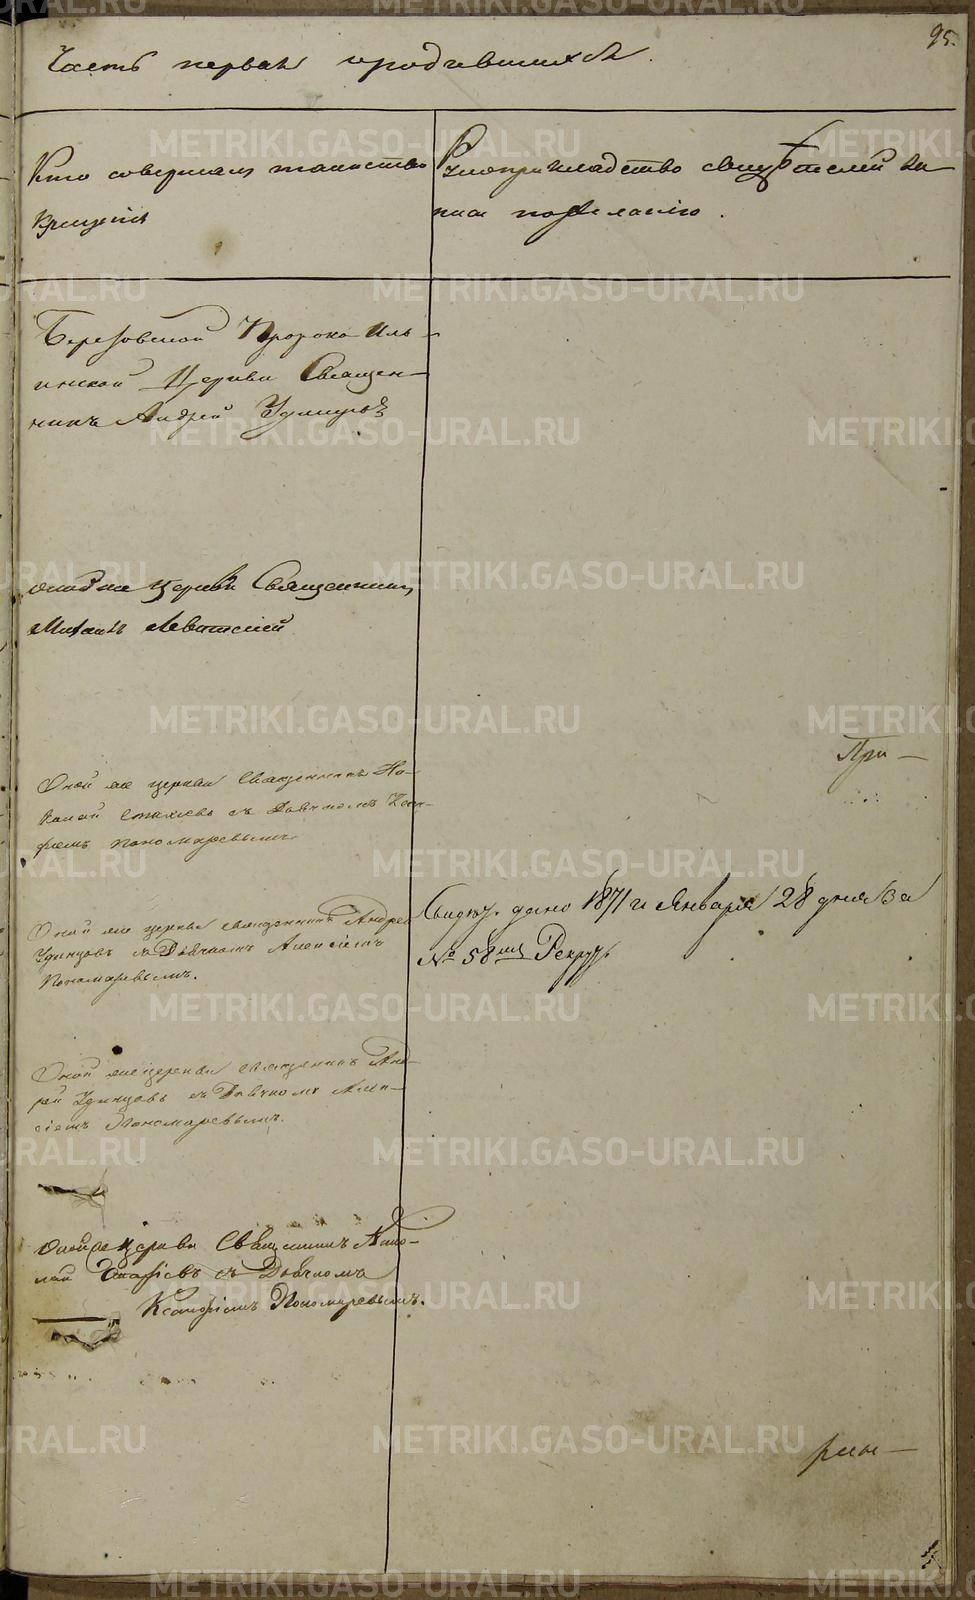 95.
Часть первая о родившихся.
Кто совершал таинство
крещенія
Рукоприкладство свидѣтелей за-
писи по желанію.
Березовской Пророко Иль-
инской Церкви Священ-
никъ Андрей Удинцовъ
оной же церкви Священникъ
Михаилъ Левитскій
При-
Оной же церкви Священникъ Ни-
колай Стахіевъ съ Дьячкомъ
Пономаревымъ
Оной же церкви священникъ Андрей
Удинцовъ съ Дьячкомъ Алексіемъ
Пономаревымъ.
Свидѣт. дано 1871 г. Января 28 дня За
№ 58 мъ Рекрут.
Оной же церкви священникъ Анд-
рей Удинцовъ съ Дьячкомъ Алек-
сіемъ Пономаревымъ.
оной же церкви Священникъ Нико-
лай Стахіевъ съ Дьячкомъ
Ксенофонтомъ Пономаревымъ.
METRIKI.GASO-URAL.RU